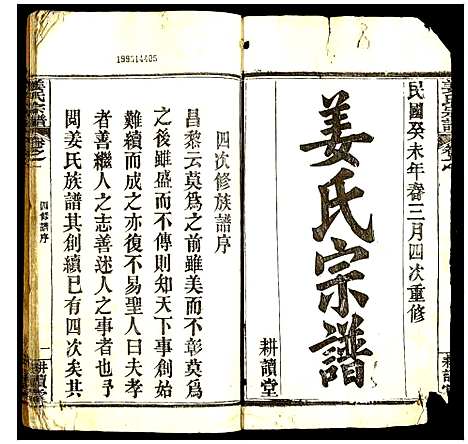 民國癸未年春三月四次重修
姜氏宗譜
耕讀堂
姜氏宗譜
耕讀堂
199514405
四次修族譜序
昌黎云莫為之前雖美而不彰莫為
之後雖盛而不傳則知天下事創始
難續而成之亦復不易聖人曰夫孝
者善繼人之志善述人之事者也今
閱姜氏族譜其創續已有四次矣其
姜氏宗譜
卷之一
四修譜序
一
耕讀堂